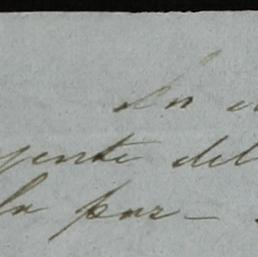 En
gente del
la par-